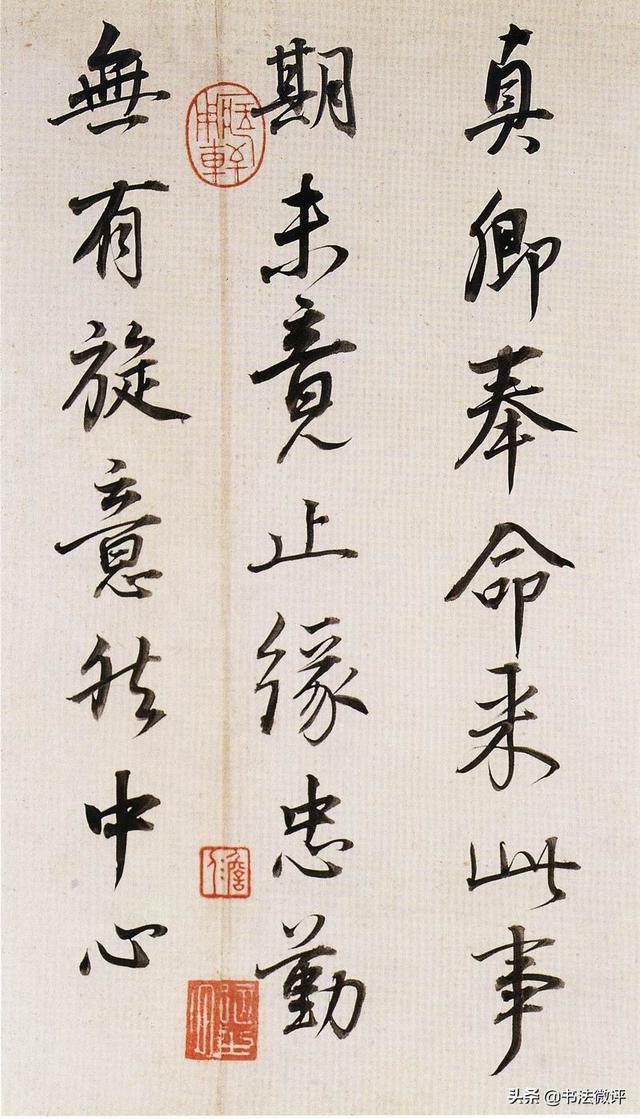 真卿奉命来此事
期未竟止緣忠勤
無有旋意然中心
头条 @书法微评